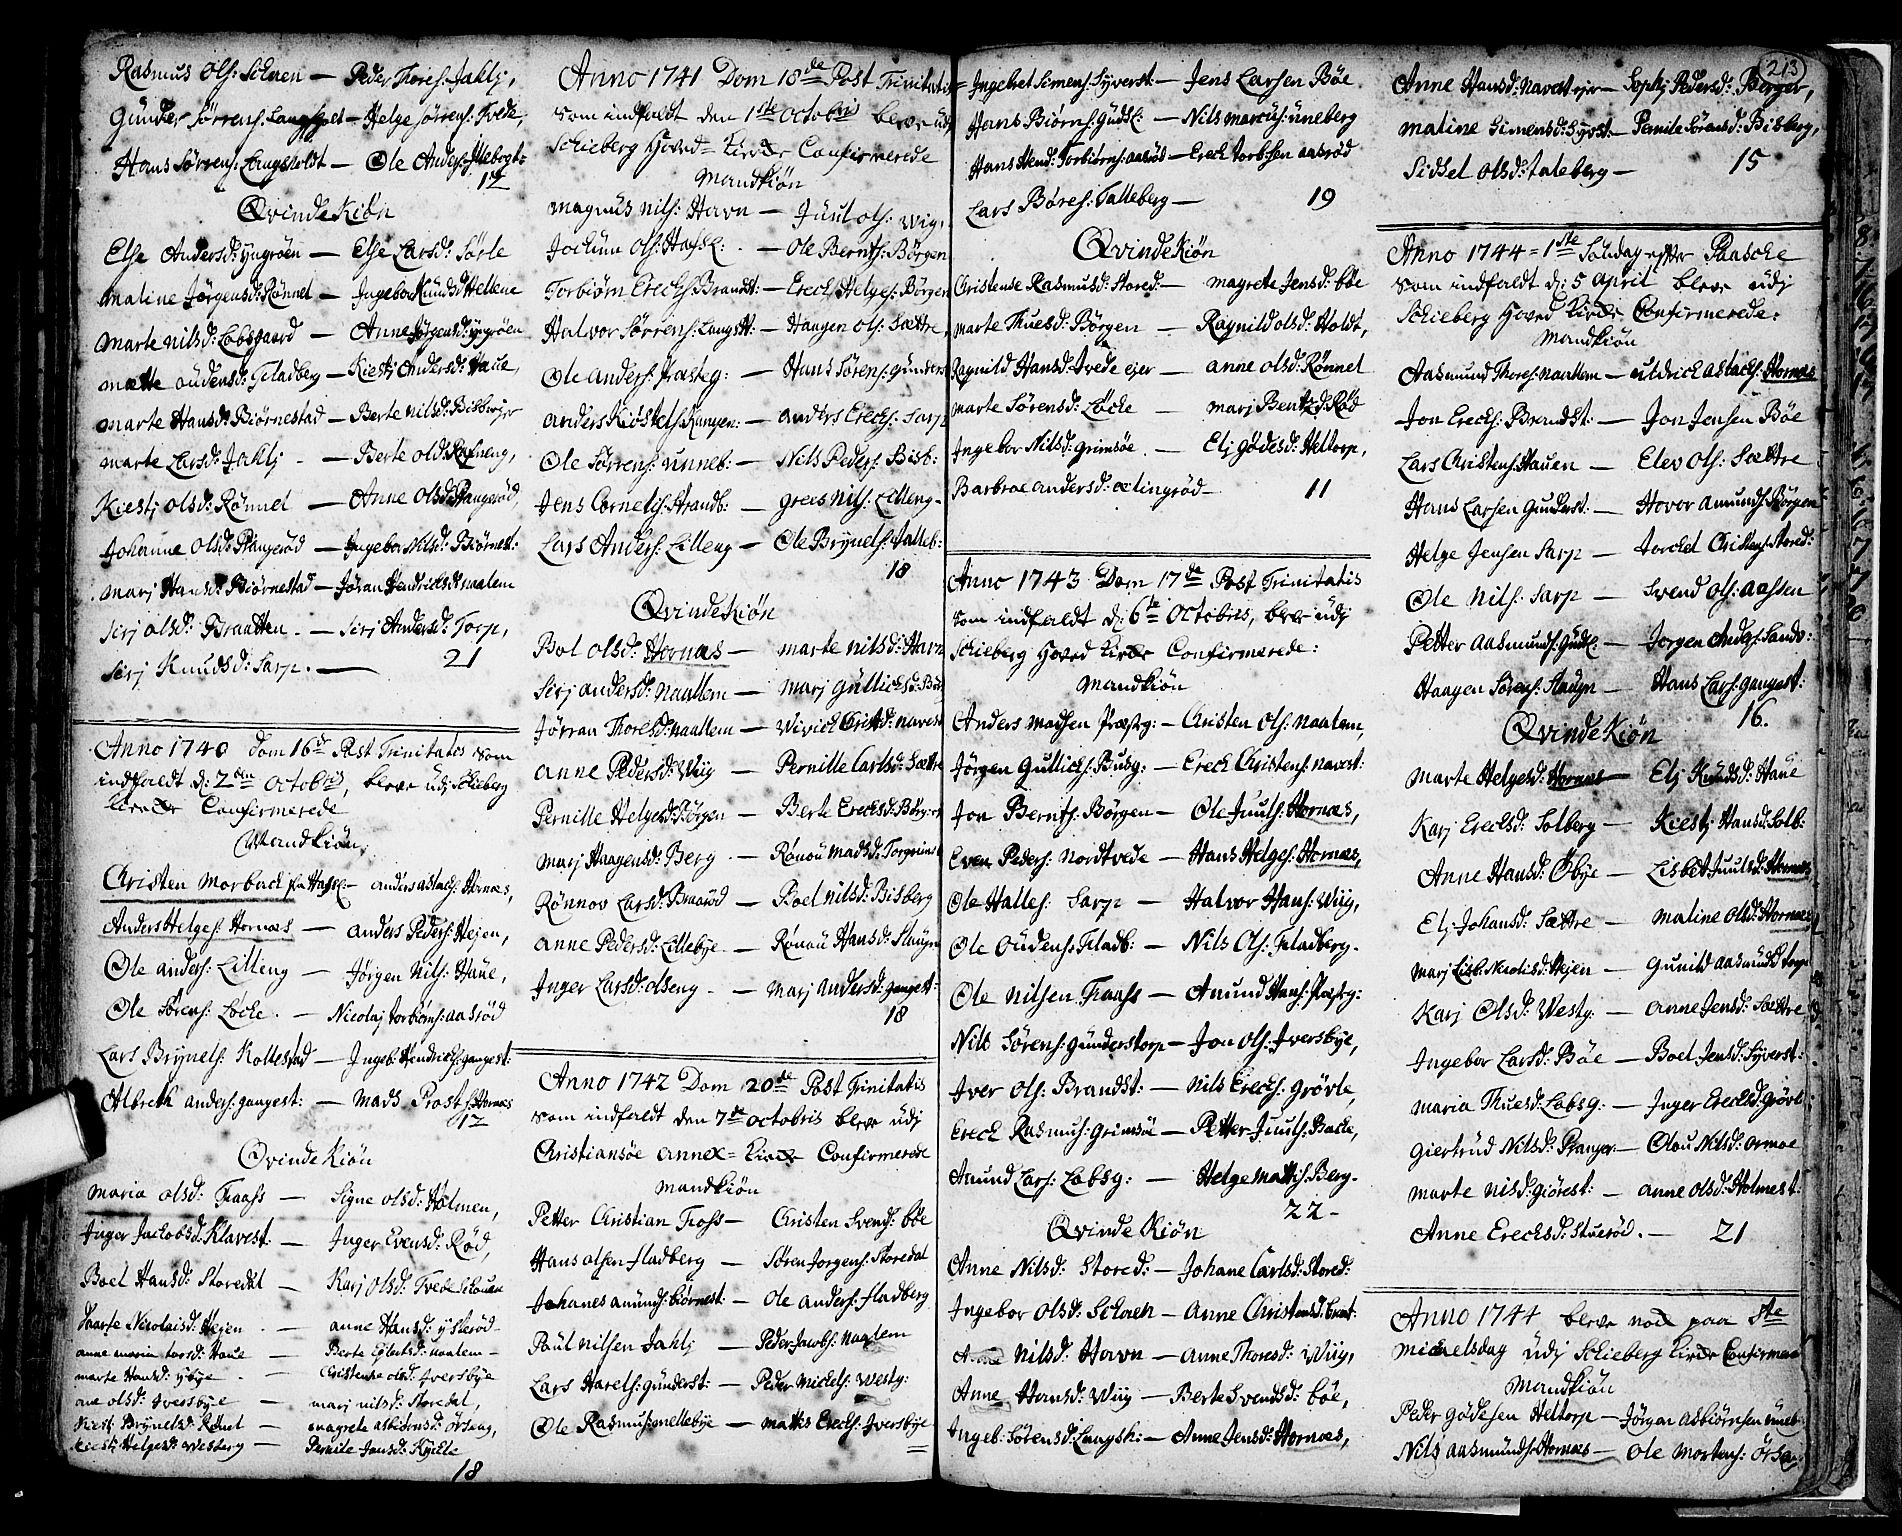 Rasmus Ols: Schuen — Peder Thores: Jahlj,
Gunder Sørrens: — Helge Sørrens: Tvede,
Hans Sørrens: Langsholdt — Ole Anders:
12
Qvinde Kiön
Else Andersd: Yngröen — Else Larsd: Sørle
Maline Jørgensd: Rønnel — Ingebor Knudsd: Hellene
Marte Nilsd: Labsgaard — Anne Jørgensd: Yngröen
Mætte Oudensd: Fladbeg — Kiestj Andersd: Haue,
Marte Hansd: Biörnestad — Berte Nilsd: Bisberg
Marte Larsd: Jahlj — Berte Olsd:
Kiestj Olsd: Rønnel — Anne Olsd: Prangerød,
Johanne Olsd: Prangerød — Ingebor Nilsd: Biörnest:
Marj Hansd: Biörnestad — Jøran Hendrichsd: Naalem
Sirj Olsd: Braatten — Sirj Andersd: Torp,
Sirj Knudsd: Sarp. — 21
Anno 1740 Dom 16de Post Trinitatis som
indfaldt d: 2den Octobris, bleve udj Schieberg
Kircke Confirmerede
Mandkiön
Christen Morbach fra Hafsl: — Anders Astachs: Hornæs,
Anders Helges: Hornæs — Anders Peders: Hejen,
Ole Anders: Lilleng — Jørgen Nils: Haue,
Ole Sørens: Løcke. — Nicolaj Torbiörns: Aasrød
Lars Brÿnels: Kollestad — Ingeb: Hendrichs: Gangest:
Albreth Anders: Gangest: — Mads Prost f: Hornæs
12
Qvinde Kiön
Maria Olsd: Traafs — Signe Olsd: Holmen,
Inger Jachobsd: Klavest. — Inger Evensd: Rød,
Boel Hansd: Storedal — Karj Olsd: Tvede
Dorte Nicolaisd: Hejen — Anne Hansd: Ysterød
Anne Maria Larsd: Haue — Berte Eylertsd: Naalem
Marte Hansd: Ybye — Christense Olsd: Iversbye
Ane Olsd: Iversbye — Marj Nilsd: Storedal,
Kiest: Brynelsd: Rønnel — Magrete Asbiörnsd: Örseng,
Kiestj Helgesd: Wesberg — Pernile Jansd:
18
Anno 1741 Dom 18de Post Trinitatis
som indfaldt den 1ste Octobris bleve udj
Schieberg Hoved Kircke Confirmerede
Mandkiön
Magnus Nils: Havn — Juul Ols: Wig,
Jochum Ols: Hafsl: — Ole Bernts: Børgen
Torbiørn Erechs: Brandst: — Erech Helges: Børgen
Halvor Sørrens: Langsh: — Haagen Ols: Sættre,
Ole Anders: Præsteg: — Hans Sørens: Gunders
Anders Kiöstels: Kangen: — Anders Erechs: Sarp
Ole Sørrens: Unneb: — Nils Peders: Bisb:
Jens Cornels: Strandb: — Grees Nils: Lilleng
Lars Anders: Lilleng — Ole Brynels: Talleb:
18
Qvinde Kiön
Bol Olsd: Hornæs — Marte Nilsd: Havn
Sirj Andersd: Naallem — Marj Gullichsd:
Jørran Thoresd: Naallem — Wivich Christd:
Anne Pedersd: Wiig — Pernille Carlsd: Sættre
Pernille Helgesd: Børgen — Berte Erechsd: Børgen
Marj Haagensd: Berg — Rönou Madsd:
Rønnov Larsd: Braarød — Boel Nilsd: Bisberg
Anne Pedersd: Lillebye — Rönou Hansd:
Inger Larsd: Olseng — Marj Andersd: Gangest:
18
Anno 1742 Dom 20de Post Trinitatis
som indfaldt den 7de Octobris bleve udj
Christiansöe annex Kircke Confirmerede
Mandkiön
Petter Christian Trofs — Christen Svends: Böe
Hans Olsen Fladberg — Søren Jorgens: Storedal
Johanes Amunds: Biörnest: — Ole Anders: Fladberg
Paul Nilsen Jahlj — Peder Jacobs: Naalem
Lars Harels: Gunderst: — Peder Michels: Westg:
Ole Rasmus: Mellebye — Mattis Erechs: Iversbye
Ingebret Simens: Syverst: — Jens Larsen Böe
Hans Biörns: Gudsl: — Nils Marcus: Unneberg
Hans Hend: Torbiörns: Aasröd — Erech Torbsen Aasröd
Lars Børes: Talleberg — 19
Qvinde Kiön
Christense Rasmusd: Stored: — Magrete Jensd: Böe
Marte Thuesd: Börgen — Raynild Olsd: Holdt,
Raynild Hansd: Tvede ejer — Anne Olsd: Rönnel
Marte Sörensd: Løcke — Marj Bentzd: Röd
Ingebor Nilsd: Grimsöe — Elj Gödesd: Heltorp,
Barbroe Andersd: Oetingröd — 11
Anno 1743 Dom 17de Post Trinitatis
som indfaldt d: 6te Octobris, bleve udj
Schieberg Hoved Kircke Confirmerede:
Mandkiön
Anders Madsen Præstg: — Christen Ols: Naalem,
Jörgen Gullichs: Busg: — Erech Christens: Navest:
Jon Bernts: Børgen — Ole Juuls: Hornæs,
Even Peders: Nordtvede — Hans Helges: Hornæs,
Ole Halles: Sarp — Halvor Hans: Wiig,
Ole Oudens: Fladb: — Nils Ols: Fladberg.
Ole Nilsen Traafs — Amund Hans: Præstg:
Nils Sørens: Gunderstorp — Jon Ols: Iversbye,
Iver Ols: Brandst: — Nils Erechs: Grövle,
Erech Rasmus: Grimsöe — Petter Juuls: Bache,
Amund Lars: Labsg: — Helge Mattis: Berg.
22
Qvinde Kiön
Anne Nilsd: Stored: — Johane Carlsd: Stored:
Ingebor Olsd: Schoen — Anne Christensd: Brant:
Anne Nilsd: Havn — Anne Thoresd: Wiig,
Anne Hansd: Wiig — Berte Svendsd: Böe,
Ingeb: Sörensd: Langsh: — Anne Jensd: Hornæs,
213
Anne Hansd: Navest ejer — Sophj Pedersd: Berger,
Maline Simensd: Syvst: — Pernile Sörensd: Bisberg,
Sidsel Olsd: Taleberg — 15
Anno 1744 = 1ste Söndag efter Paasche
som indfaldt d: 5 April bleve udj
Schieberg Hoved Kircke Confirmerede:
Mandkiön
Aasmund Thores: Naallem — Uldrich Astachs: Hornæs
Jon Erechs: Brandst: — Jon Jensen Böe
Lars Christens: Hauen — Elev Ols: Sættre
Hans Larsen Gunderst: — Hovor Amunds: Börgen
Helge Jensen Sarp — Torchel Christens: Stored:
Ole Nils: Sarp — Svend Ols: Aafsen
Petter Aasmunds: Gudsl: — Jorgen Andrs: Sandv:
Haagen Sörens: — Hans Lars: Gangest:
16.
Qvinde Kiön
Marte Helgesd: Hornæs — Elj Knudsd: Haue
Karj Erechsd: Solberg — Kiestj Hansd: Solb:
Anne Hansd: Öbye — Lisbet Juulsd: Hornæs
Elj Johansd: Sættre — Maline Olsd: Hornæs
Marj Lisb: Nicolisd: Hejen — Gunild Aasmundsd:
Karj Olsd: Westg: — Anne Jensd: Sættre
Ingebor Larsd: Böe — Boel Jensd: Syverst:
Maria Thuesd: Labsg: — Inger Erechsd: Grövl:
Giertrud Nilsd: Pranger: — Olou Nilsd: Ormoe
Marte Nisd: Giörest: — Anne Olsd: Holmest:
Anne Erechsd: Stueröd. — 21
Anno 1744 bleve noch paa Ste
Michelsdag udj Schieberg Kircke Confirmer
Mandkiön
Peder Gödesen Heltorp — Jörgen Asbiörnsen Uneb
Nils Aasmunds: Hornæs — Ole Mortens: